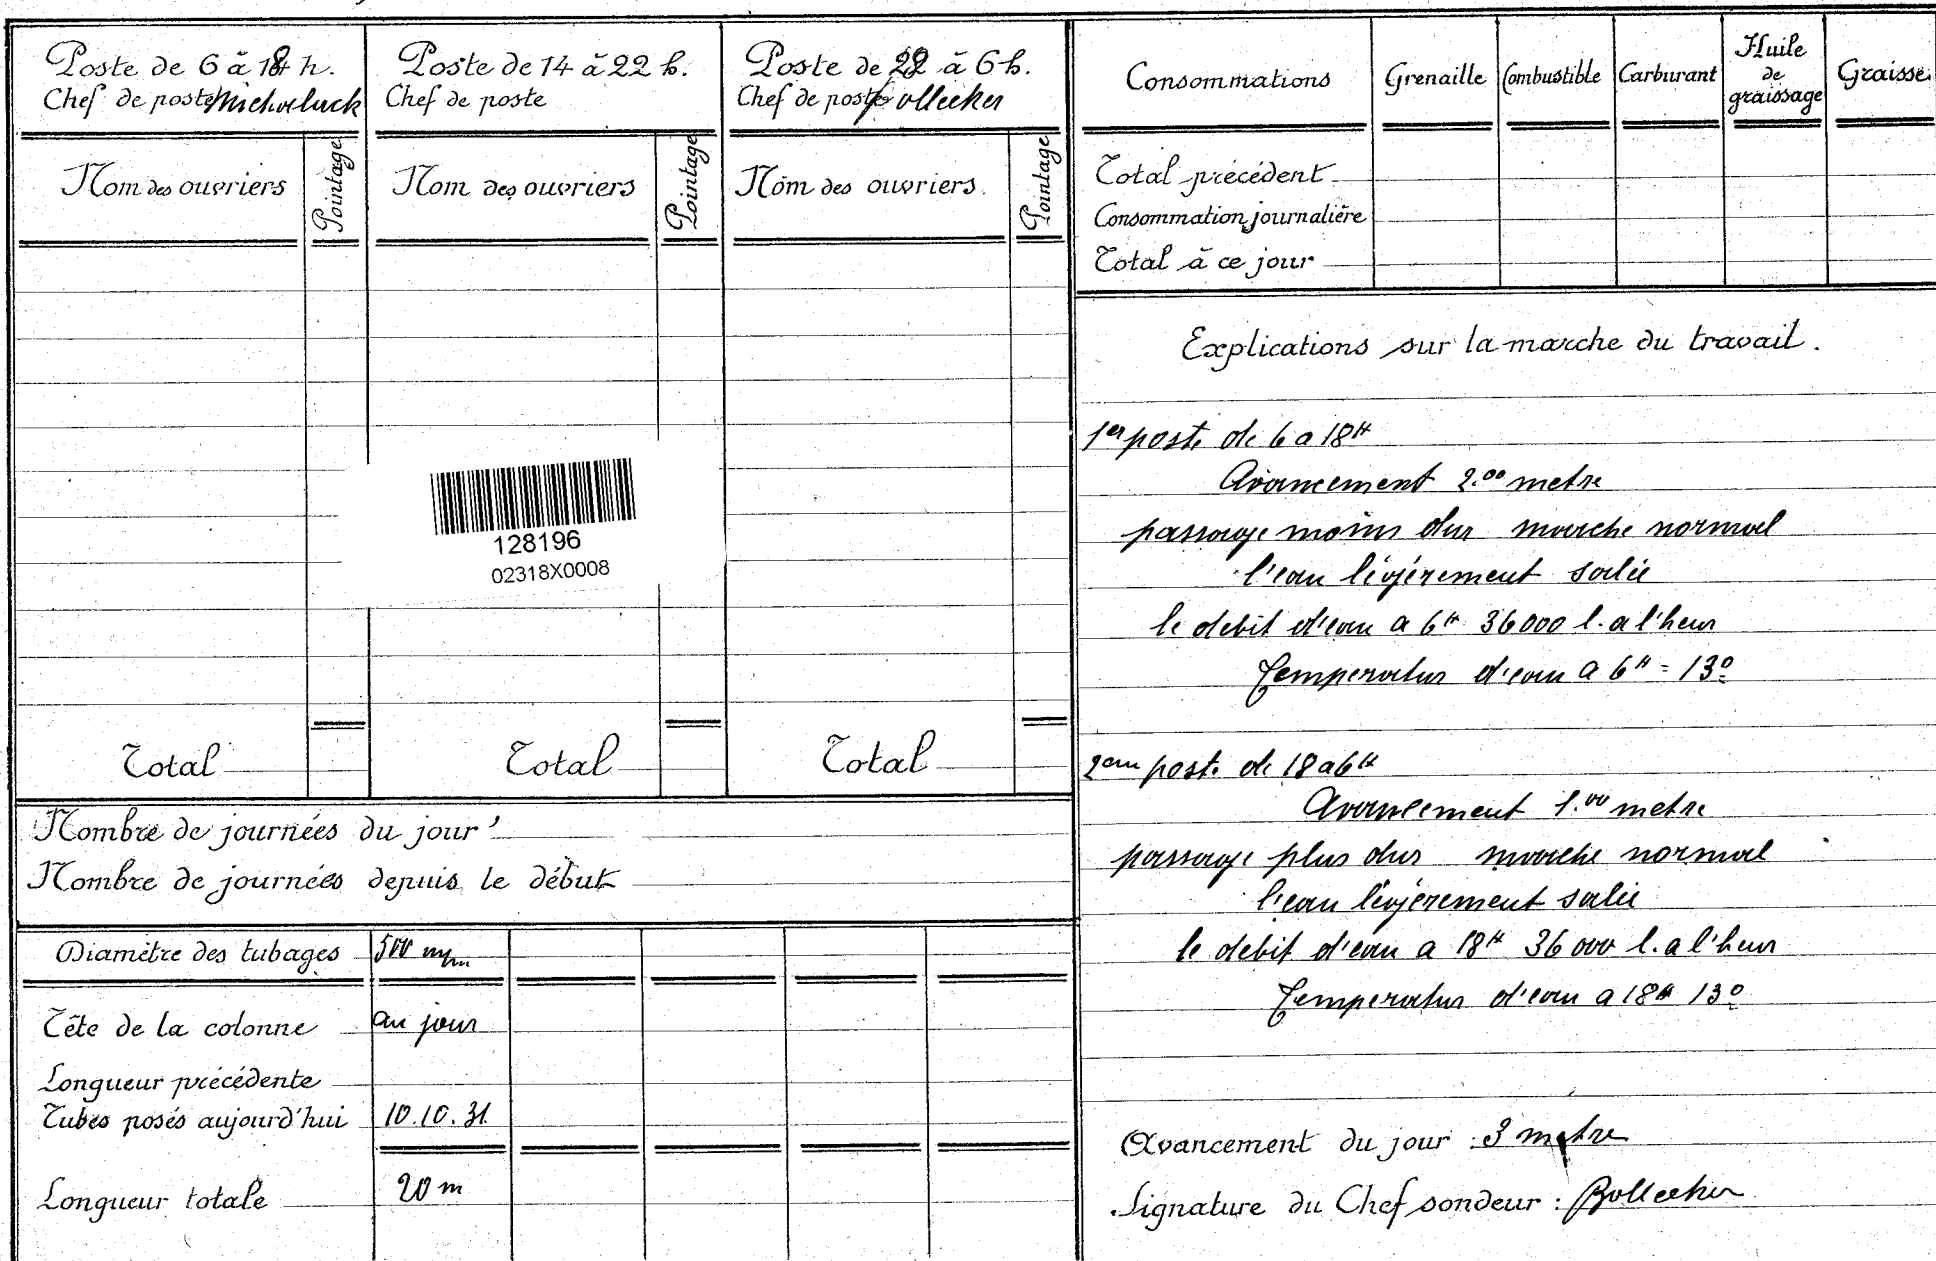 Poste de 6 à 18 h.
Chef de poste
Nom des ouvriers
Pointage
Total
Poste de 14 à 22 h.
Chef de poste
Nom des ouvriers
Pointage
Total
Poste de 22 à 6 h.
Chef de poste
Nom des ouvriers.
Pointage
Total
128196
02318X0008
Nombre de journées du jour
Nombre de journées depuis le début
Diamètre des tubages 500 m/m
Tête de la colonne au jour
Longueur précédente
Tubes posés aujourd'hui 10.10.31
Longueur totale 20 m
Consommations Grenaille Combustible Carburant Huile de graissage Graisse
Total précédent
Consommation journalière
Total à ce jour
Explications sur la marche du travail.
1er poste de 6 a 18H
Avancement 2.00 metre
passage moins dur marche normal
l'eau légérement salée
le debit d'eau a 6H 36000 l. a l'heur
Temperatur d'eau a 6H = 13º
2em poste de 18 a 6H
Avancement 1.00 metre
passage plus dur marche normal
l'eau légérement salée
le debit d'eau a 18H 36000 l. a l'heur
Temperatur d'eau a 18H 13º
Avancement du jour : 3 metre
Signature du Chef sondeur : Bollecker